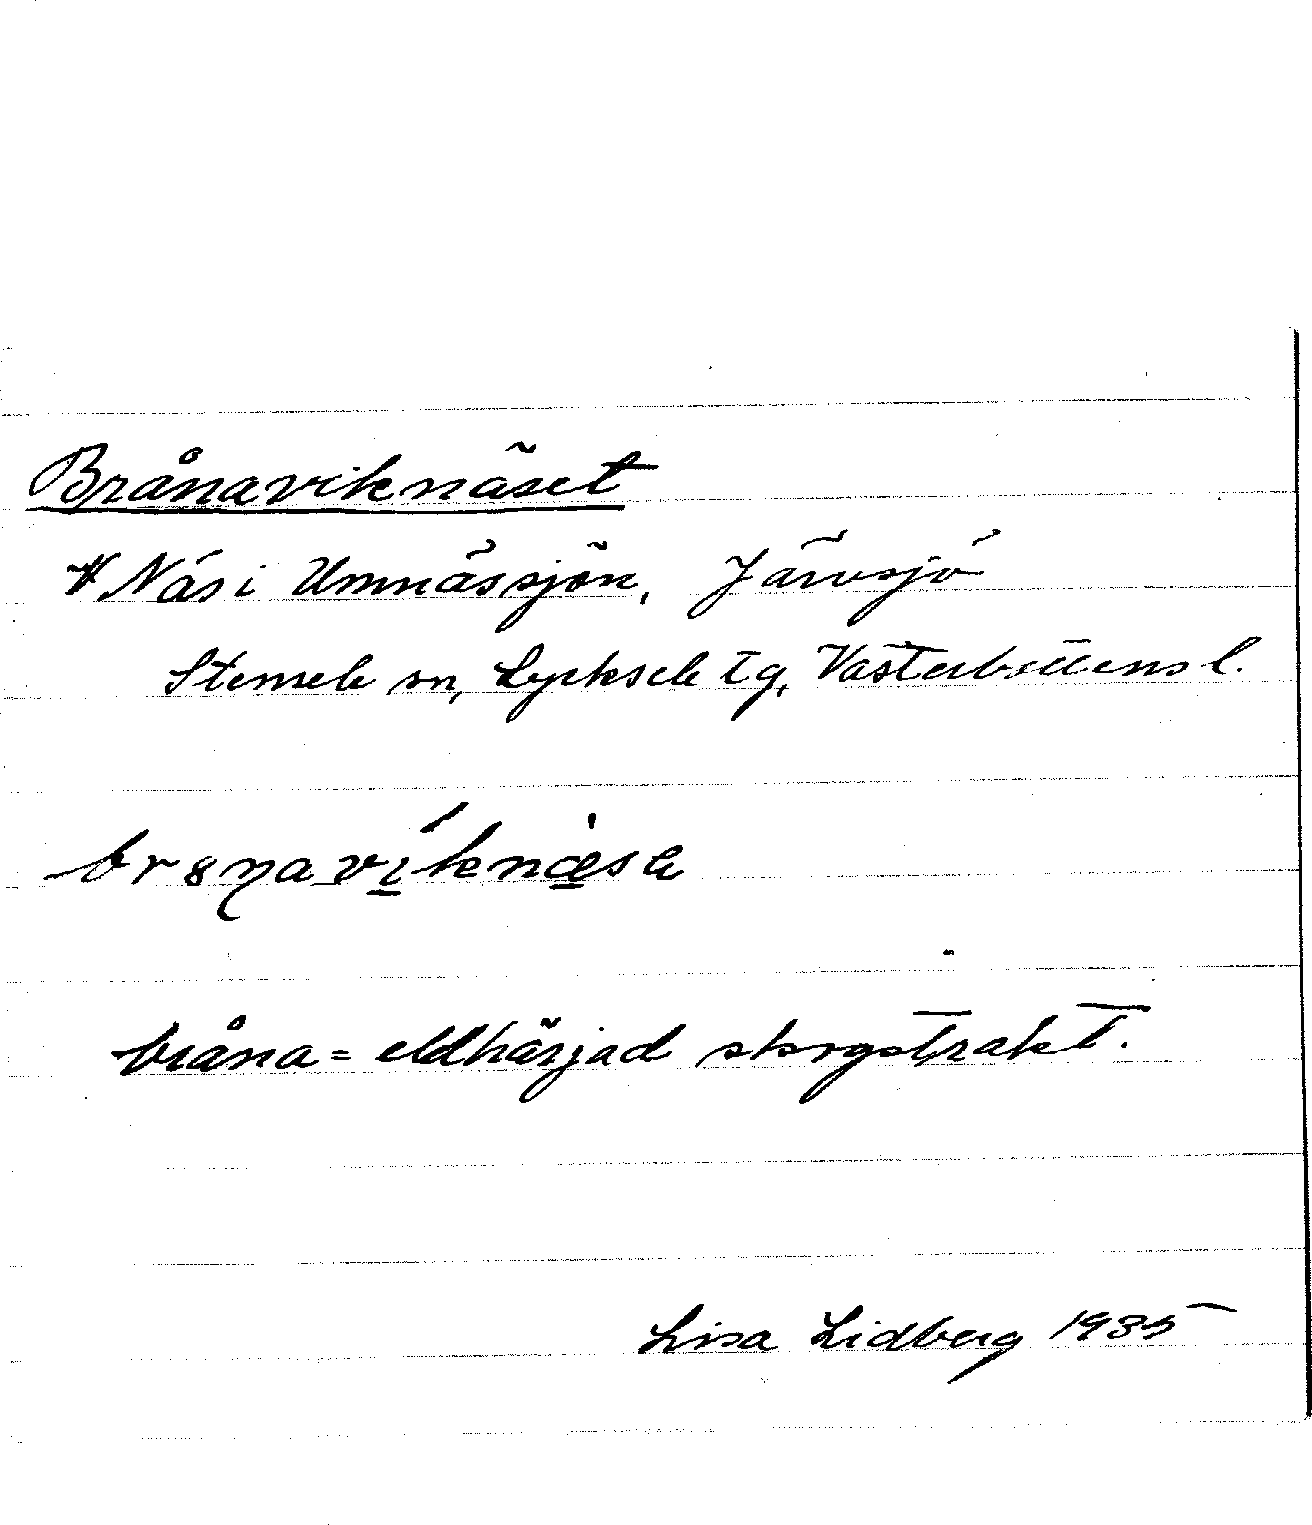 Brånaviknäset
* Näs i Umnässjön, Järvsjö
Stensele sn, Lycksele tg, Västerbottens l.
br8ŋavíknæ̀se
bråna = eldhärjad skogstrakt.
Lisa Lidberg 1935